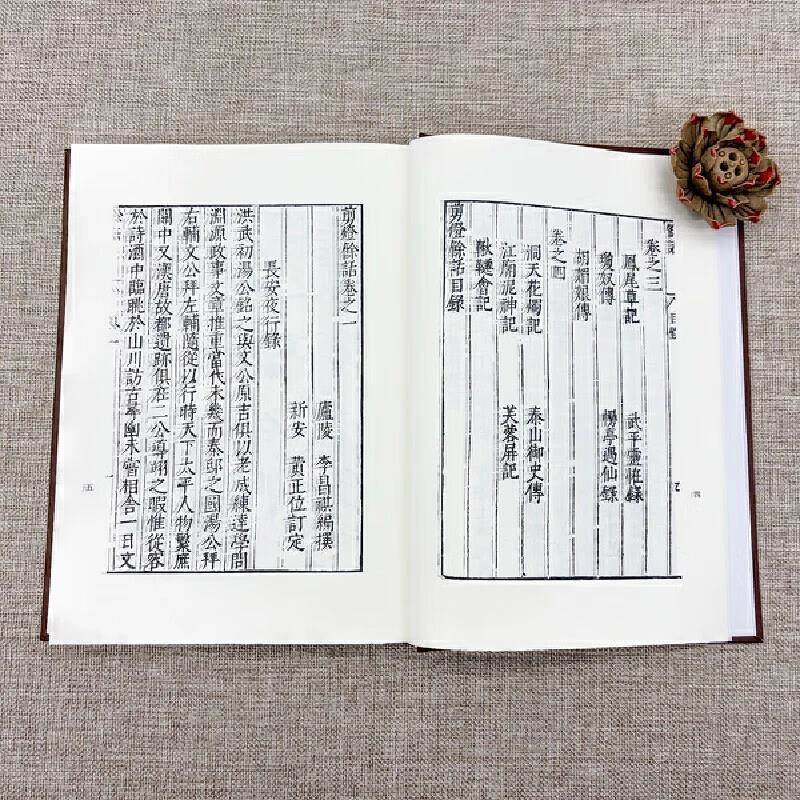 卷之三
鳳尾草記
武平靈怪錄
瓊奴傳
暢亭過仙錄
胡媚娘傳
卷之四
洞天花燭記
泰山御史傳
江廟泥神記
芙蓉屏記
鞦韆會記
剪燈餘話目錄
四
剪燈餘話卷之一
廬陵 李昌祺編撰
新安 黃正位訂定
長安夜行錄
洪武初湯公銘之與文公原吉俱以老成練達學問
淵源政事文章推重當代未幾而秦邸之國湯公拜
右輔文公拜左輔隨從以行時天下太平人物繁庶
關中又漢唐故都遺跡俱在二公導翊之暇惟從容
於詩酒中臨眺於山川訪古尋幽未嘗相合一日文
五